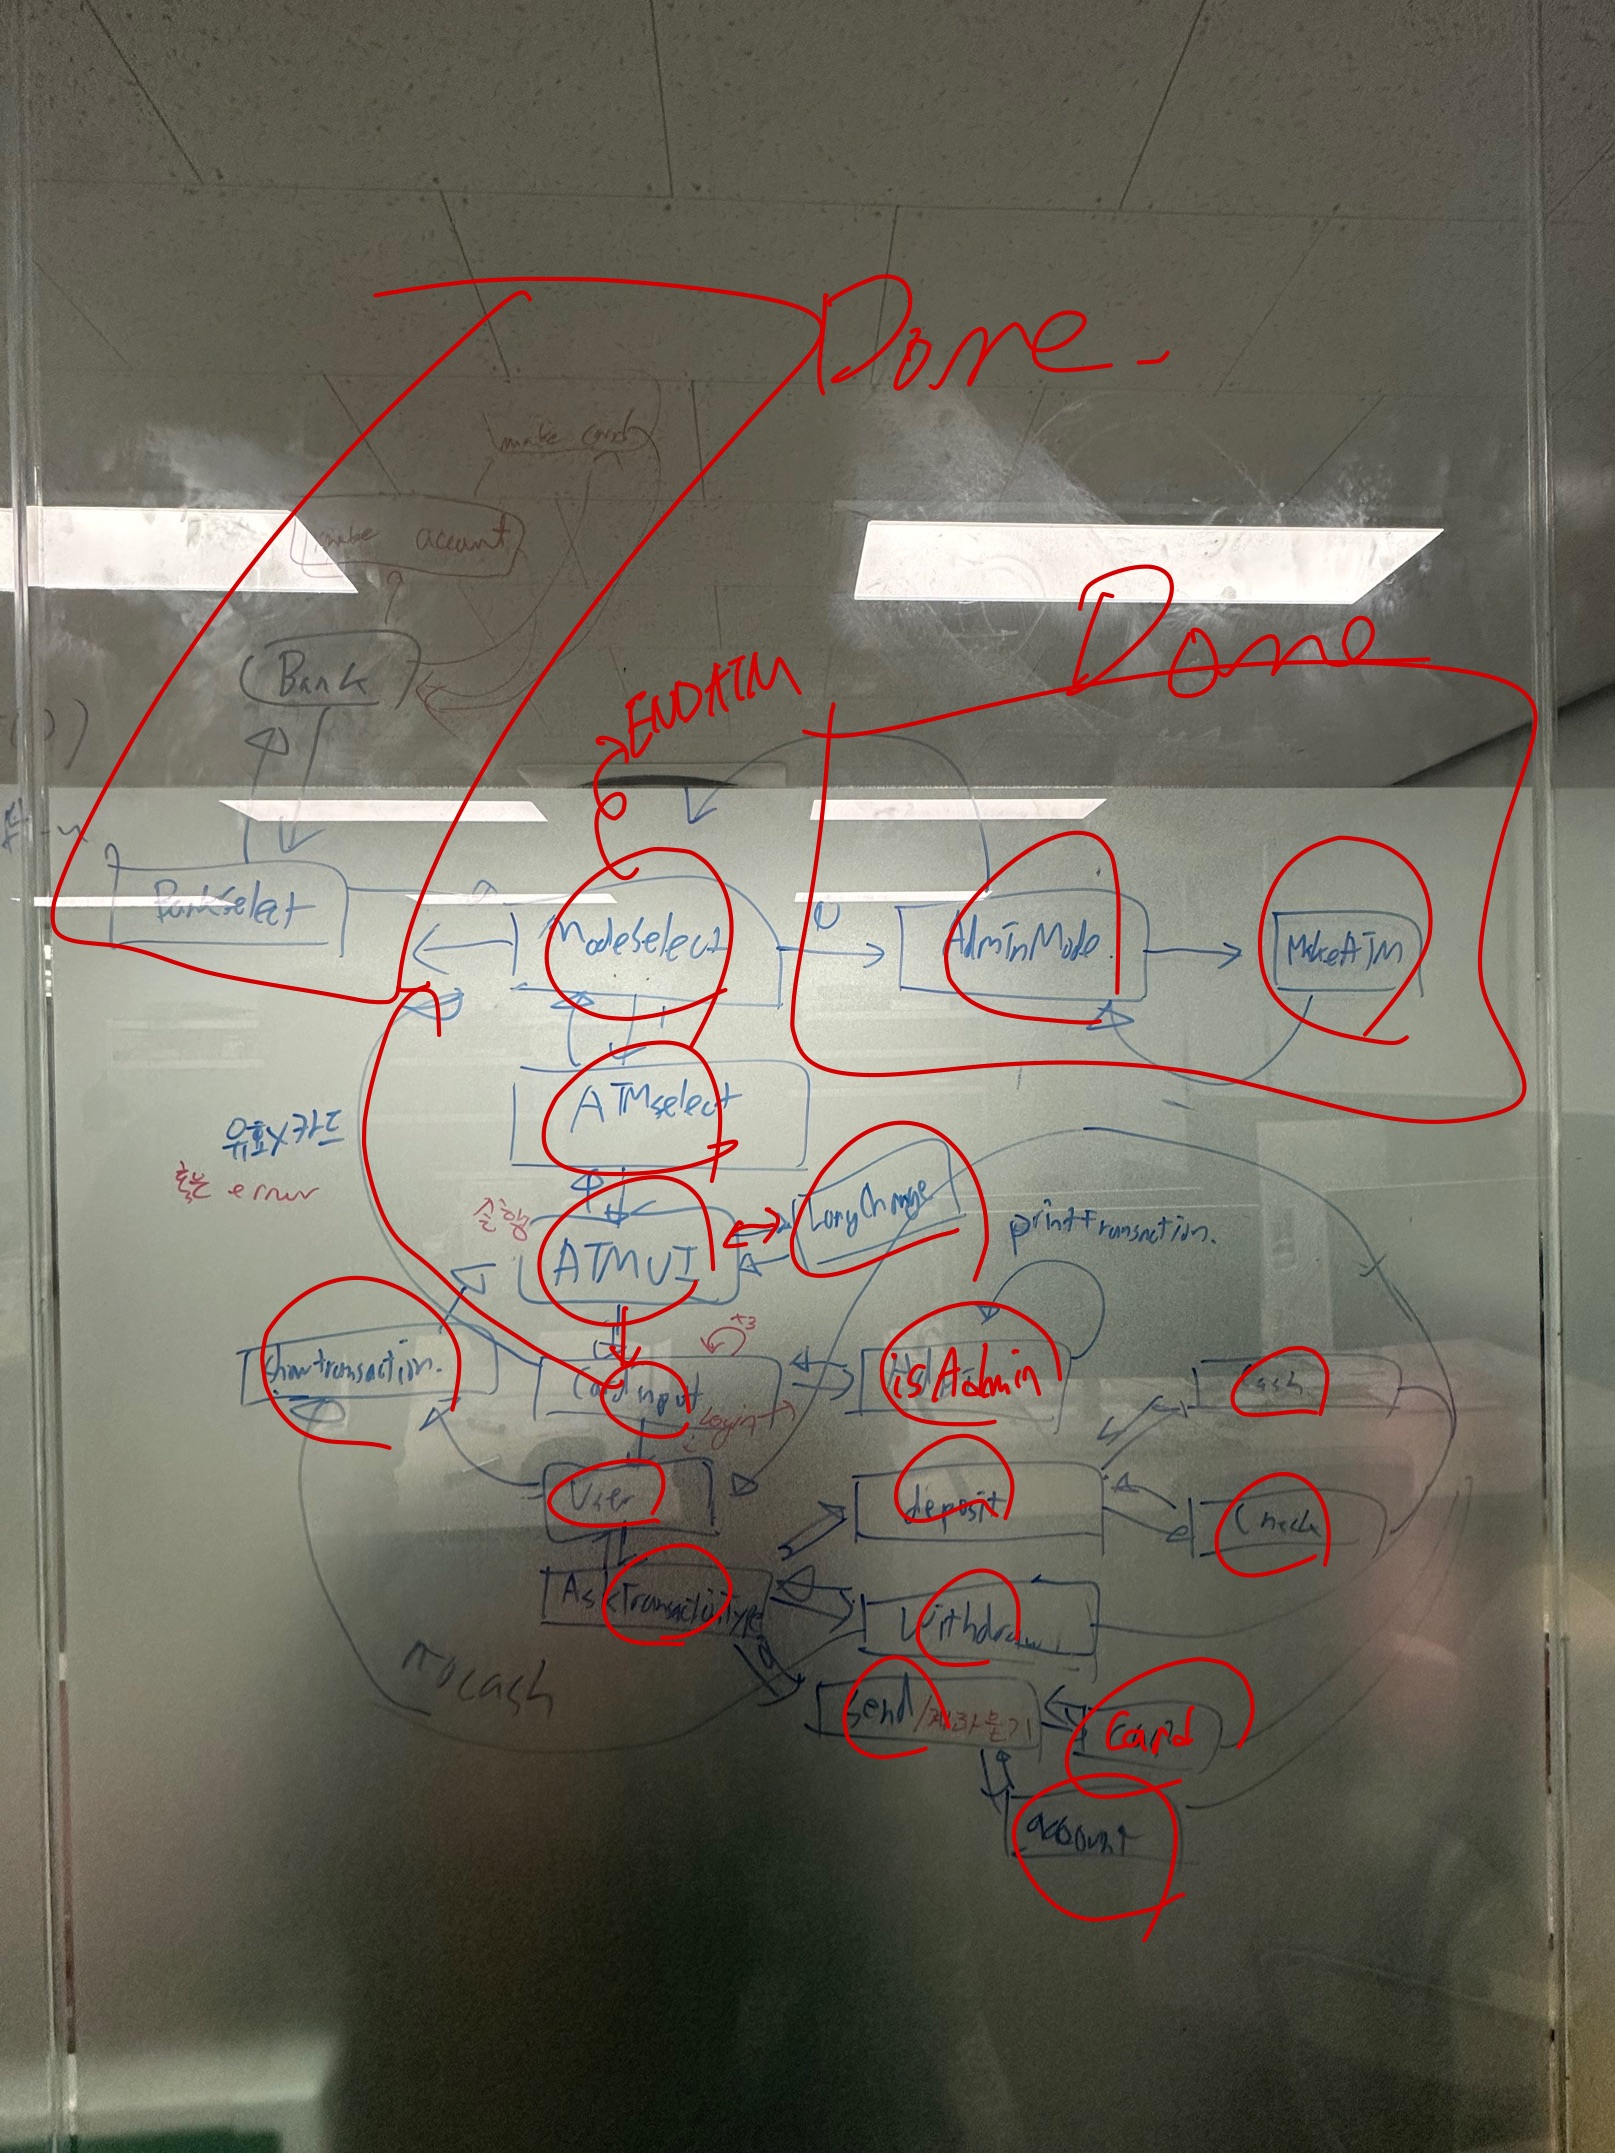 Done.
make card
make account
Bank
ENDATM
Done
BankSelect
ModeSelect
AdminMode
MakeATM
ATMselect
유효X카드
혹은 error
LangChange
printtransaction.
ATMUI
x3
showtransaction.
Card input
isAdmin
Cash
Login
User
deposit
Check
AskTransactionType
Withdraw
no cash
Send/
Card
account